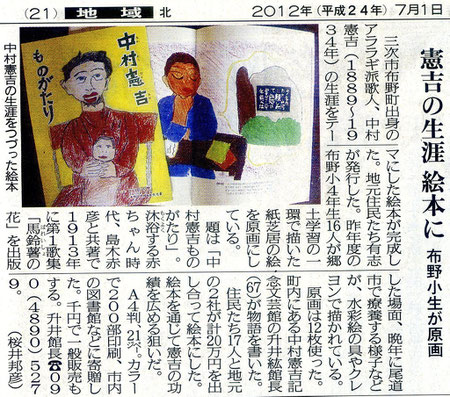 (21) 地域 北 2012年(平成24年) 7月1日
憲吉の生涯 絵本に
布野小生が原画
三次市布野町出身の
アララギ派歌人、中村
憲吉(1889〜19
34年)の生涯をテー
マにした絵本が完成し
た。地元住民たち有志
が発行した。昨年度の
布野小4年生16人が郷
土学習の一
環で描いた
紙芝居の絵
を原画にし
ている。
題は「中
村憲吉もの
がたり」。
沐浴する赤
ちゃん時
代、島木赤
彦と共著で
1913年
に第1歌集
「馬鈴薯の
花」を出版
した場面、晩年に尾道
市で療養する様子など
が、水彩絵の具やクレ
ヨンで描かれている。
原画は12枚使った。
町内にある中村憲吉記
念文芸館の升井紘館長
(67)が物語を書いた。
住民たち17人と地元
の2社が計20万円を出
し合って絵本にした。
絵本を通じて憲吉の功
績を広める狙いだ。
A4判21㌻。カラー
で200部印刷、市内
の図書館などに寄贈し
た。千円で一般販売も
する。升井館長☎09
0(4890)527
9。 (桜井邦彦)
中村憲吉
ものがたり
中村憲吉の生涯をつづった絵本